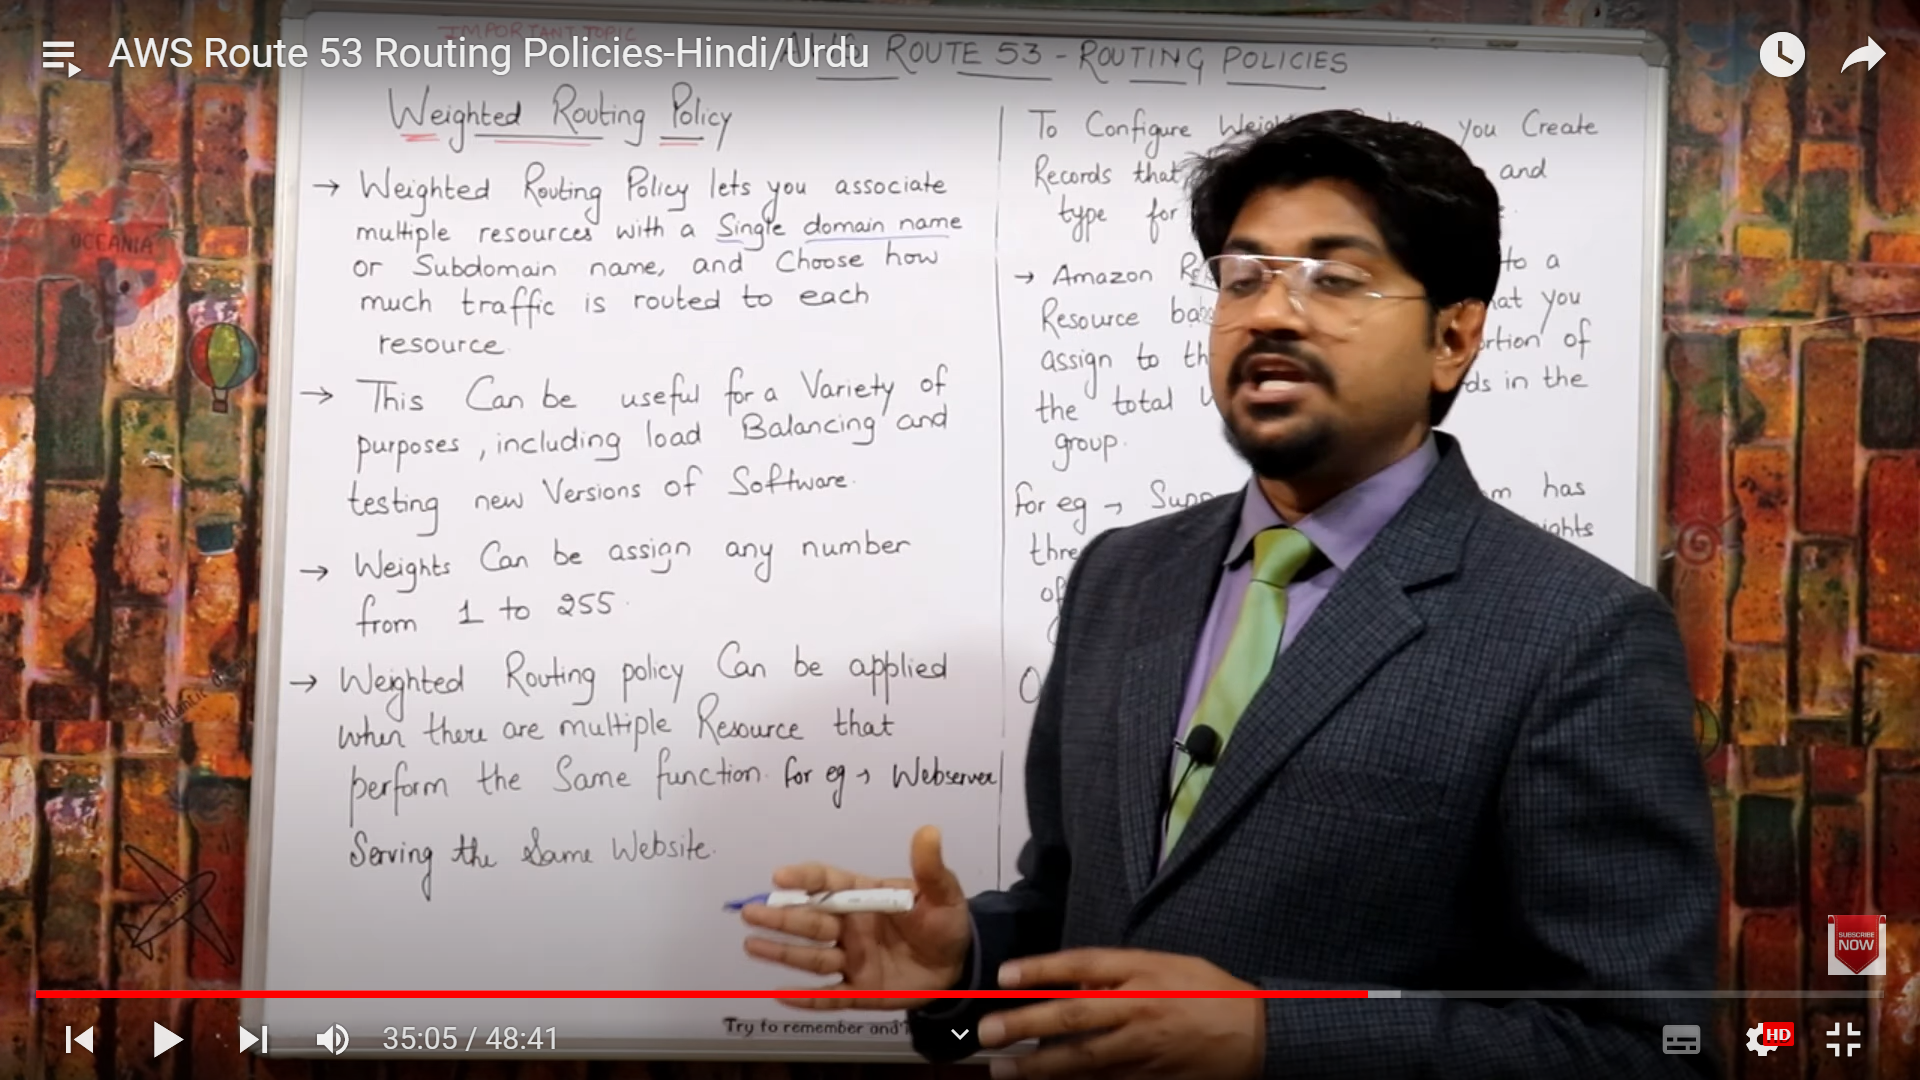 IMPORTANT TOPIC
AWS Route 53 Routing Policies-Hindi/Urdu
AWS ROUTE 53 - ROUTING POLICIES
Weighted Routing Policy
→ Weighted Routing Policy lets you associate
multiple resources with a Single domain name
or Subdomain name, and Choose how
much traffic is routed to each
resource.
→ This Can be useful for a Variety of
purposes, including load Balancing and
testing new Versions of Software.
→ Weights Can be assign any number
from 1 to 255.
→ Weighted Routing policy Can be applied
when there are multiple Resource that
perform the Same function. for eg → Webserver
Serving the Same Website.
To Configure you Create
Records that and
type for
→ Amazon to a
Resource you
assign to of
the total in the
group.
for eg → has
of
OCEANIA
SUBSCRIBE
NOW
35:05 / 48:41
Try to remember and
HD